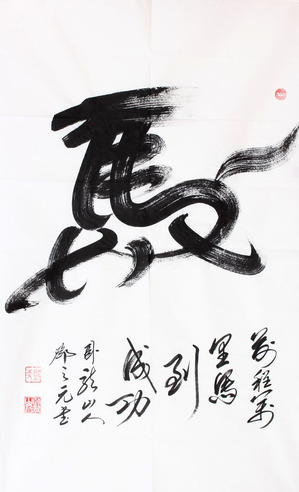 馬
前程萬
里馬
到
成功
卧龍山人
之元書